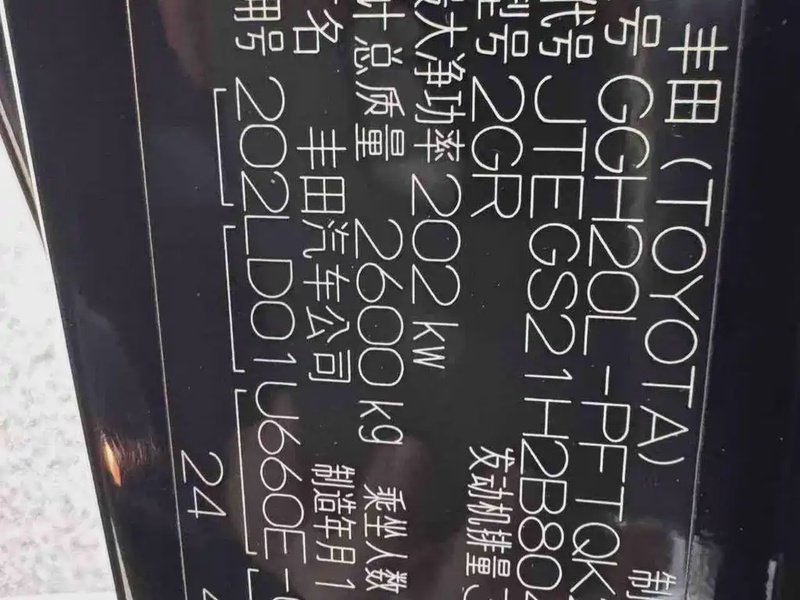 丰田 (TOYOTA) 制
号 GGH20L-PFTQK
代号 JTEGS21H2B80
号 2GR 发动机排量
大净功率 202 kW
计总质量 2600 kg 乘坐人数
名 丰田汽车公司 制造年月 1
用号 202 LD01 U660E-
24